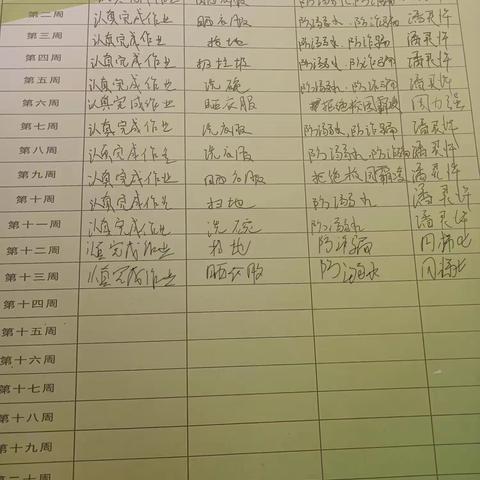 第二周 认真完成作业 晒衣服 防溺水.防诈骗 潘灵许
第三周 认真完成作业 扫地 防溺水.防诈骗 潘灵许
第四周 认真完成作业 扔垃圾 防溺水.防诈骗 潘灵许
第五周 认真完成作业 洗碗 防溺水.防诈骗 潘灵许
第六周 认真完成作业 晒衣服 拒绝校园霸凌 周力强
第七周 认真完成作业 洗衣服 防溺水.防诈骗 潘灵许
第八周 认真完成作业 洗衣服 防溺水.防诈骗 潘灵许
第九周 认真完成作业 晒衣服 拒绝校园霸凌 潘灵许
第十周 认真完成作业 扫地 防溺水 潘灵许
第十一周 认真完成作业 洗碗 防溺水 潘灵许
第十二周 认真完成作业 扫地 防诈骗
第十三周 认真完成作业 晒衣服 防溺水
第十四周
第十五周
第十六周
第十七周
第十八周
第十九周
第二十周